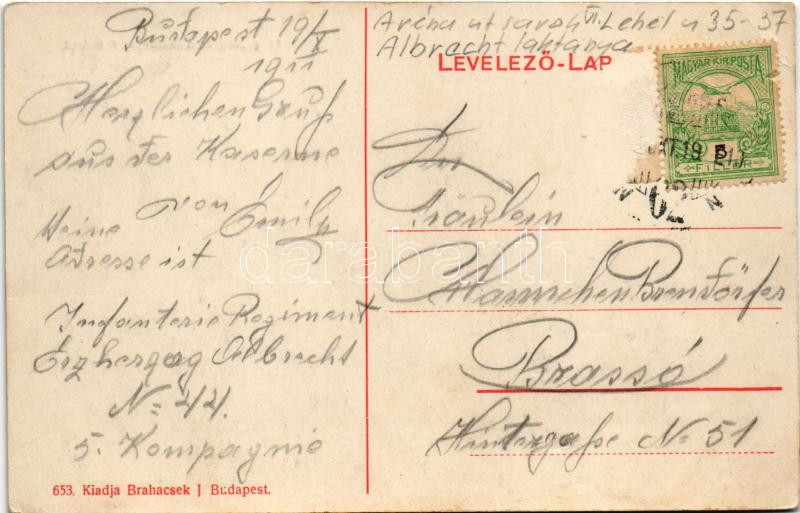 Budapest 19/X
1911
Herzlichen Gruß
aus der Kaserne
von Emily
Meine
Adresse ist
Infanterie Regiment
Erzherzog Albrecht
No 44.
5. Kompagnie
653. Kiadja Brahacsek J Budapest.
Aréna ut sarok VI. Lehel u 35-37
Albrecht laktanya
LEVELEZŐ-LAP
MAGYAR KIR. POSTA
5
FILLÉR
Fräulein
Hannchen Brendörfer
Brassó
Hintergaße No 51
darabanth